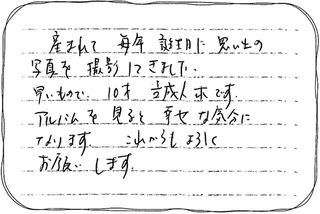 産まれて 毎年 誕生日に 思い出の
写真を 撮影してきました.
早いもので. 10才 です.
アルバムを 見ると 幸せな気分に
なります. これからもよろしく
お願いします.